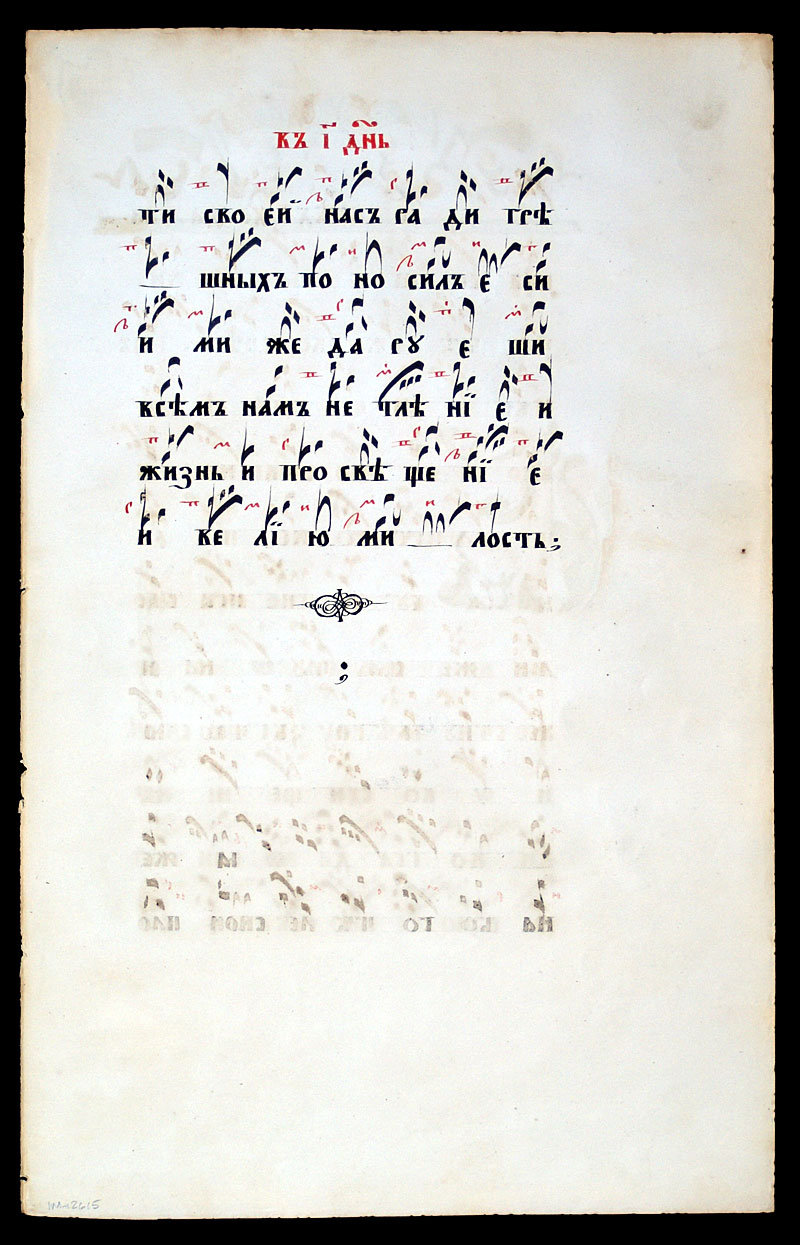 въ і҃ дн҃ь
ти ско ей насъ ра ди грѣ
шныхъ по но силъ є си
и ми же да ру є ши
всѣмъ намъ не тлѣ нї є и
жизнь и про свѣ ще нї є
и ве лї ю ми лость ;
;